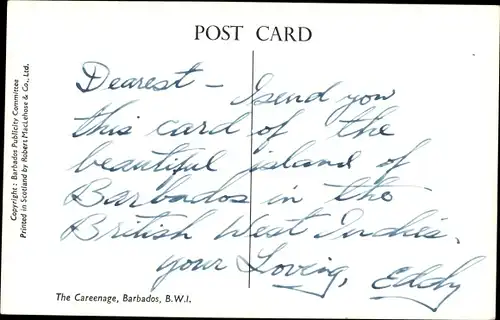 POST CARD
Dearest - I send you
this card of the
beautiful island of
Barbados in the
British West Indies.
your Loving, Eddy
The Careenage, Barbados, B.W.I.
Copyright: Barbados Publicity Committee
Printed in Scotland by Robert MacLehose & Co., Ltd.